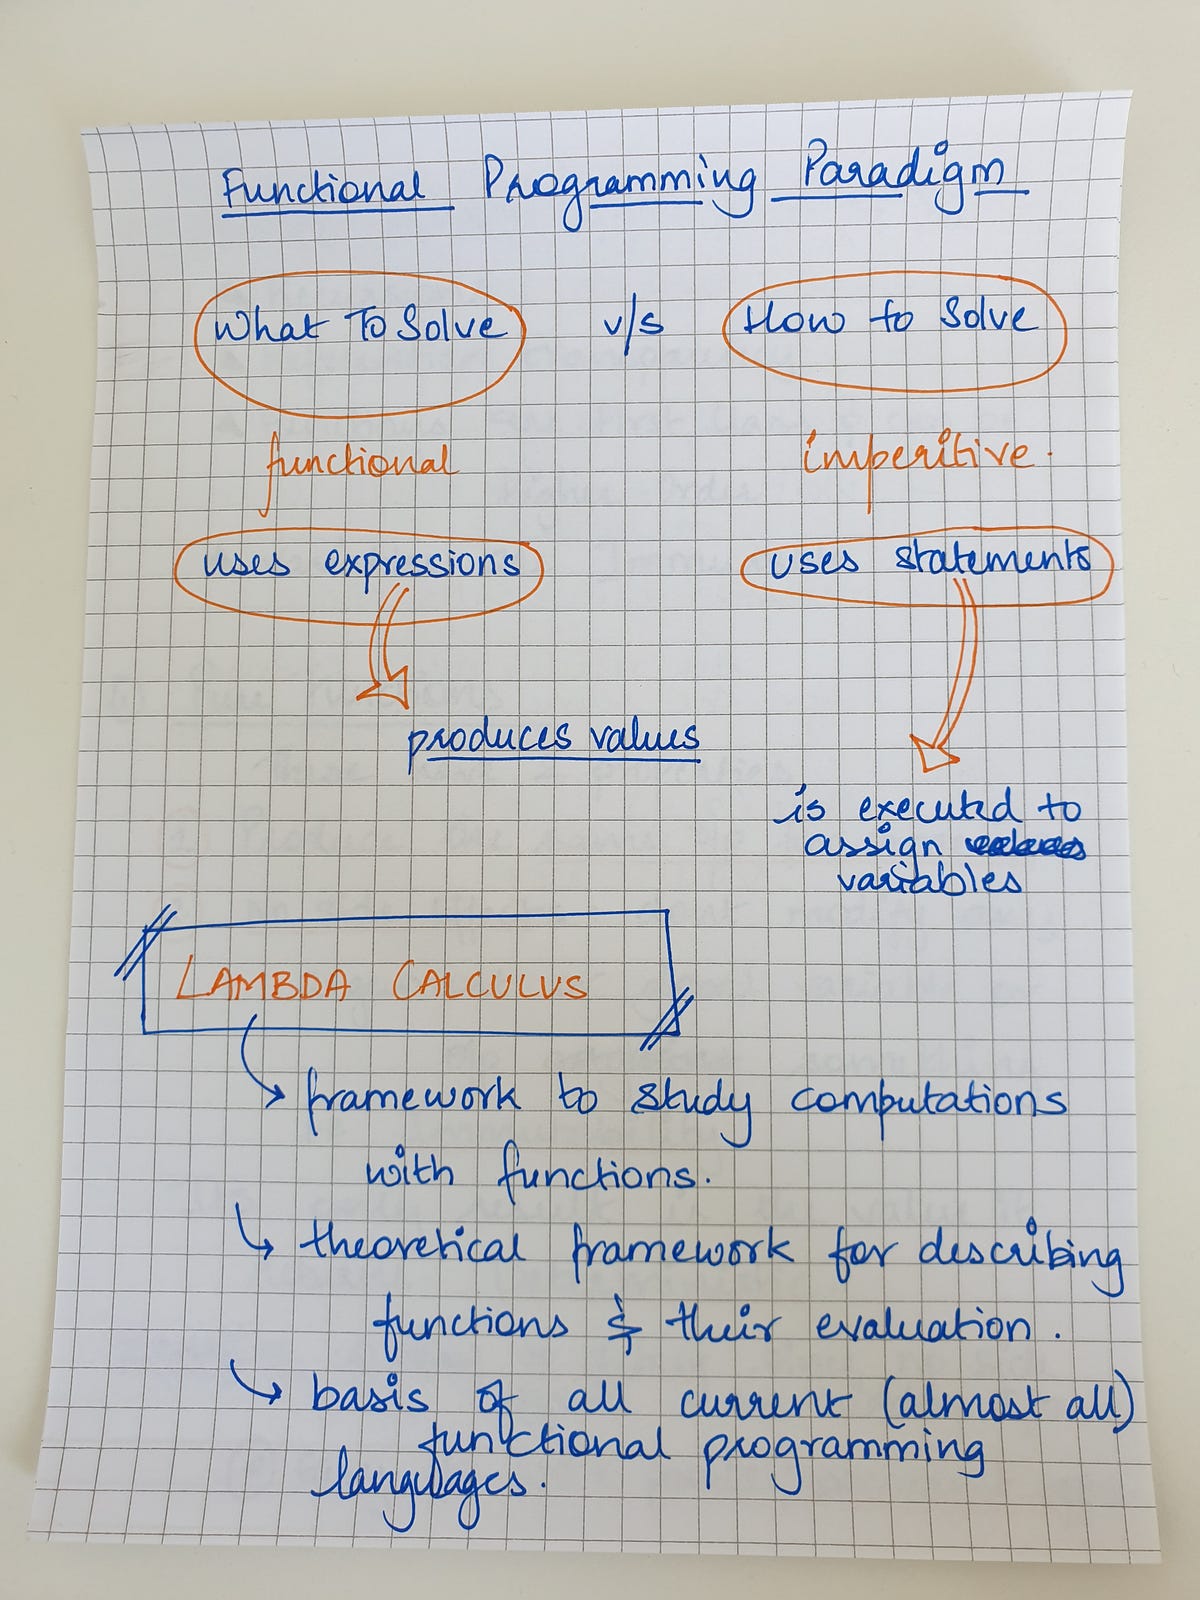 Functional Programming Paradigm
What To Solve v/s How to Solve
functional imperitive.
uses expressions uses statements
produces values
is executed to
assign
variables
LAMBDA CALCULUS
framework to study computations
with functions.
theoretical framework for describing
functions & their evaluation.
basis of all current (almost all)
functional programming
languages.